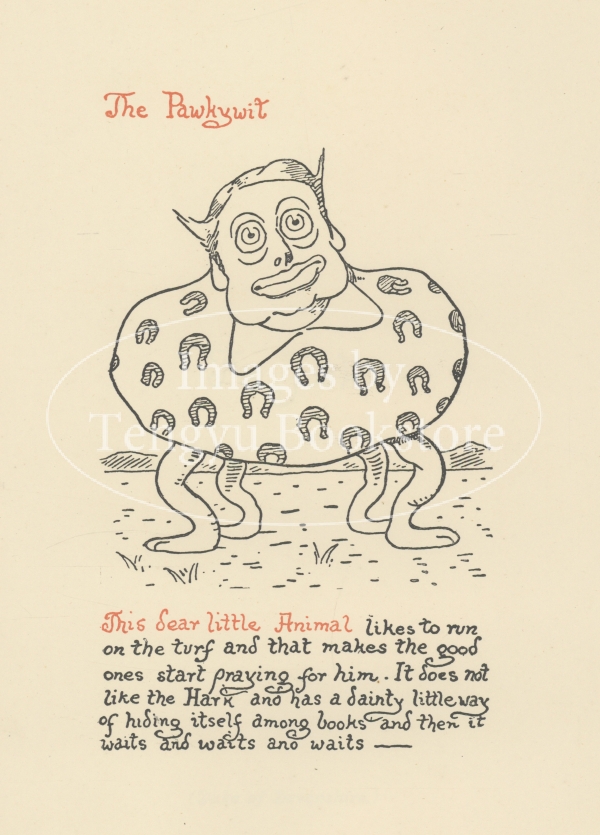 The Pawkywit
Images by
Tengyu Bookstore
This dear little Animal likes to run
on the turf and that makes the good
ones start praying for him. It does not
like the Hark and has a dainty little way
of hiding itself among books and then it
waits and waits and waits —